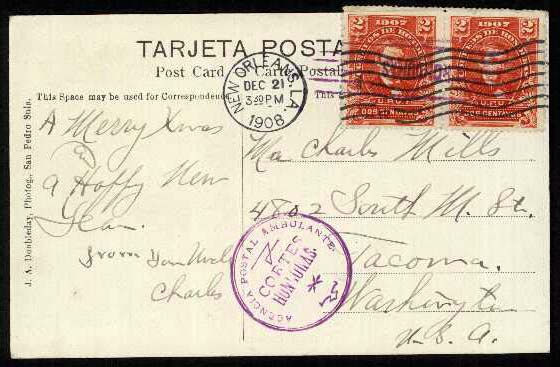 TARJETA POSTA
Post Card Carte Postale
This Space may be used for Correspondence
This
J. A. Doubleday, Photog., San Pedro Sula.
2 1907 2
2 1907 2
U.P.U.
U.P.U.
DOS CENTAVOS
DOS CENTAVOS
NEW ORLEANS, LA
DEC 21
3 30 PM
1908
A Merry Xmas
and
a Happy New
Year.
from your Uncle
Charles
Charles Mills
4802 South M. St.
Tacoma.
Washington
U.S.A.
AGENCIA POSTAL AMBULANTE
CORTES
HONDURAS